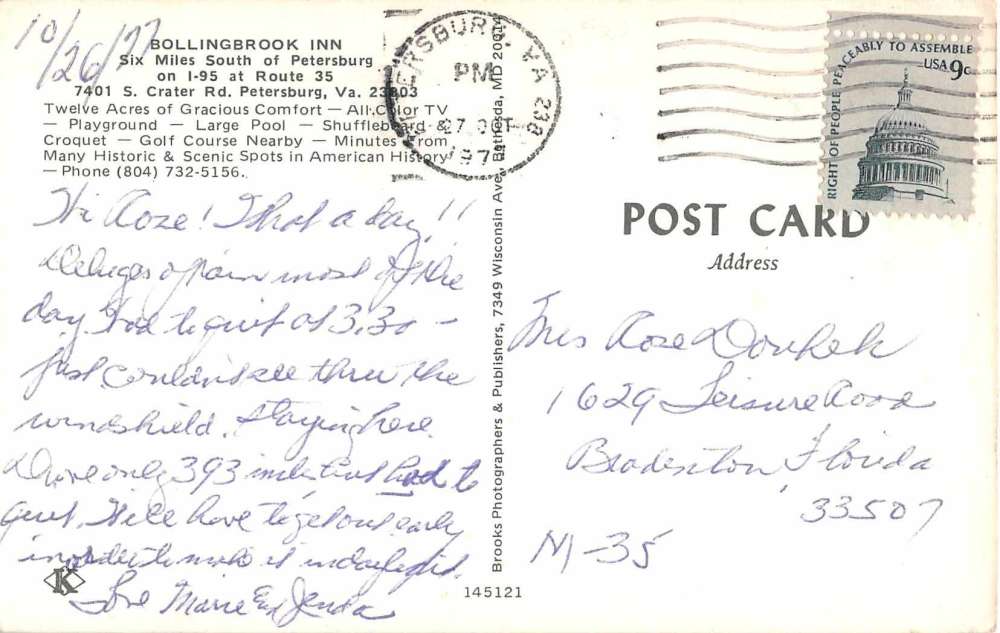 10/26/77
BOLLINGBROOK INN
Six Miles South of Petersburg
on I-95 at Route 35
7401 S. Crater Rd. Petersburg, Va. 23803
Twelve Acres of Gracious Comfort — All Color TV
— Playground — Large Pool — Shuffleboard &
Croquet — Golf Course Nearby — Minutes From
Many Historic & Scenic Spots in American History
— Phone (804) 732-5156.
Hi Roze! What a day!!
Deluges of rain most of the
day. Had to quit at 3.30 —
just couldn't see thru the
windshield. Staying here.
Drove only 393 miles but had to
quit. Will have to get out early
in order to make it in daylight.
Love Marie and Jenda
K
145121
Brooks Photographers & Publishers, 7349 Wisconsin Ave., Bethesda, MD 20014
PETERSBURG, VA 238
PM
27 OCT
197
RIGHT OF PEOPLE PEACEABLY TO ASSEMBLE
USA 9c
POST CARD
Address
Mrs Roze
1629 Leisure Road
Bradenton, Florida
33507
M-35